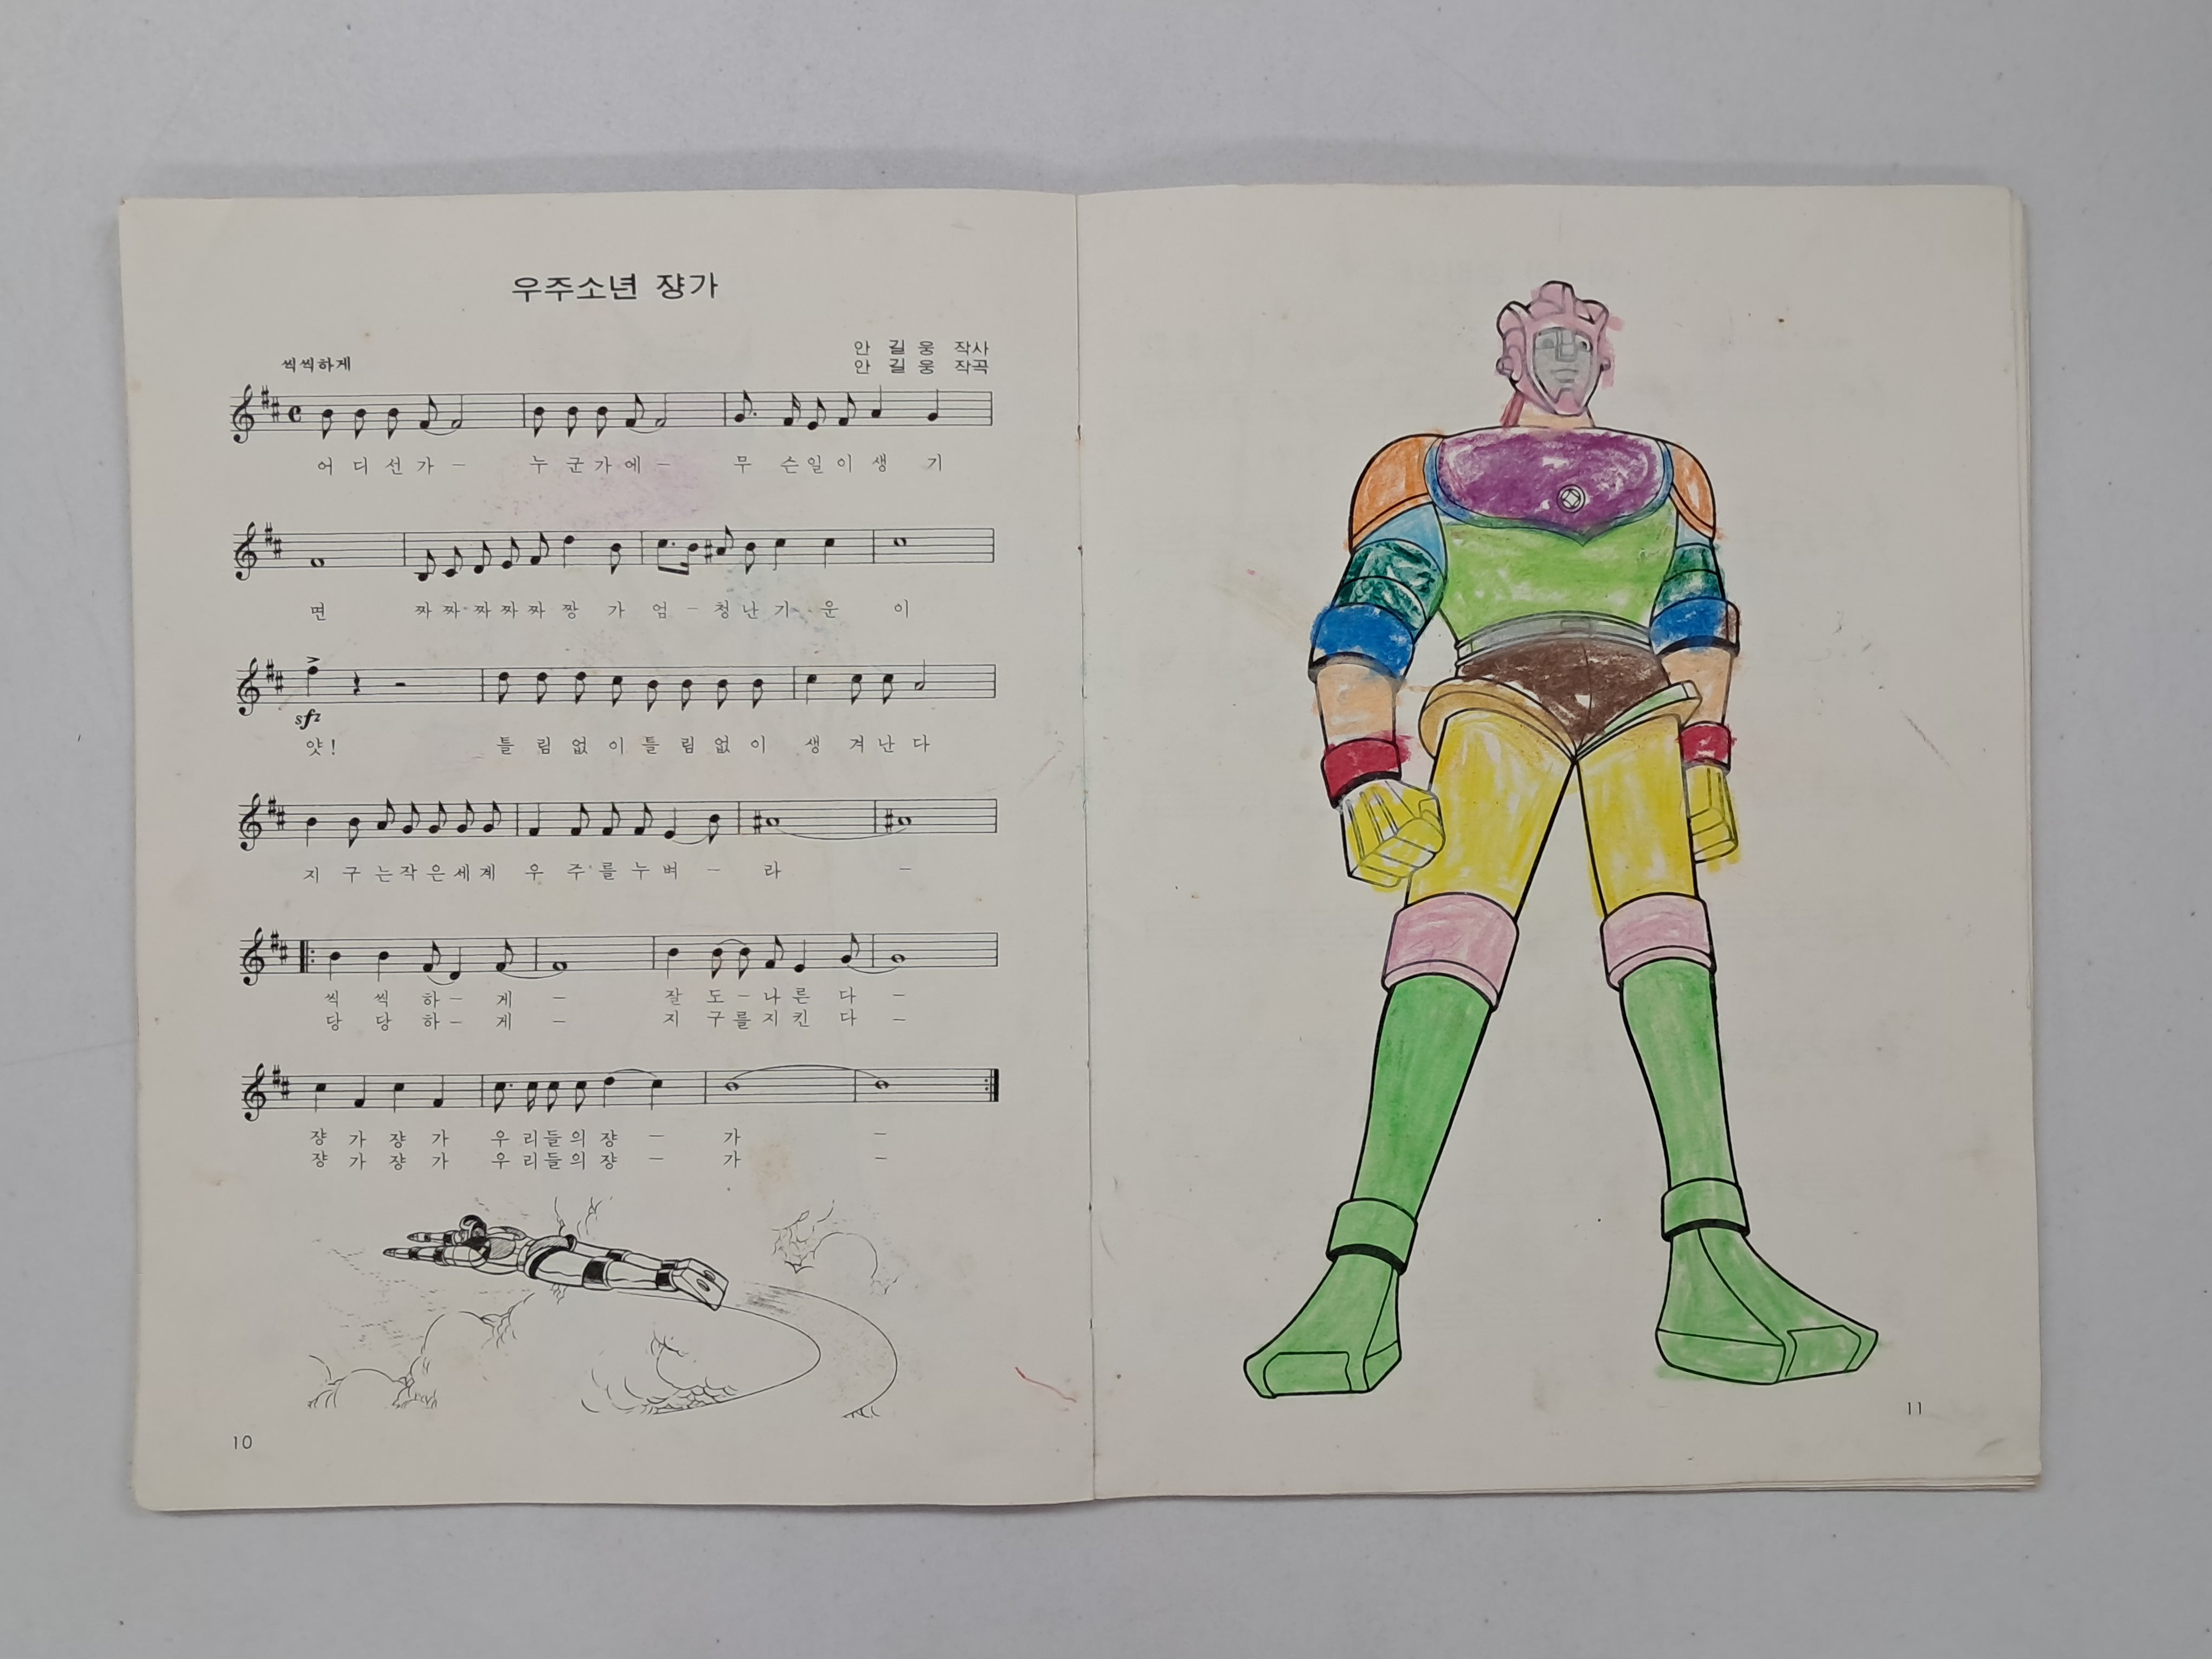 우주소년 쟝가
안 길 웅 작사
씩씩하게
안 길 웅 작곡
C
어 디 선 가 – 누 군 가 에 – 무 슨 일 이 생 기
면 짜 짜 짜 짜 짜 짱 가 엄 – 청 난 기 운 이
sfz
얏! 틀 림 없 이 틀 림 없 이 생 겨 난 다
지 구 는 작 은 세 계 우 주 를 누 벼 – 라 –
씩 씩 하 – 게 – 잘 도 – 나 른 다 –
당 당 하 – 게 – 지 구 를 지 킨 다 –
쟝 가 쟝 가 우 리 들 의 쟝 – 가 –
쟝 가 쟝 가 우 리 들 의 쟝 – 가 –
10
11